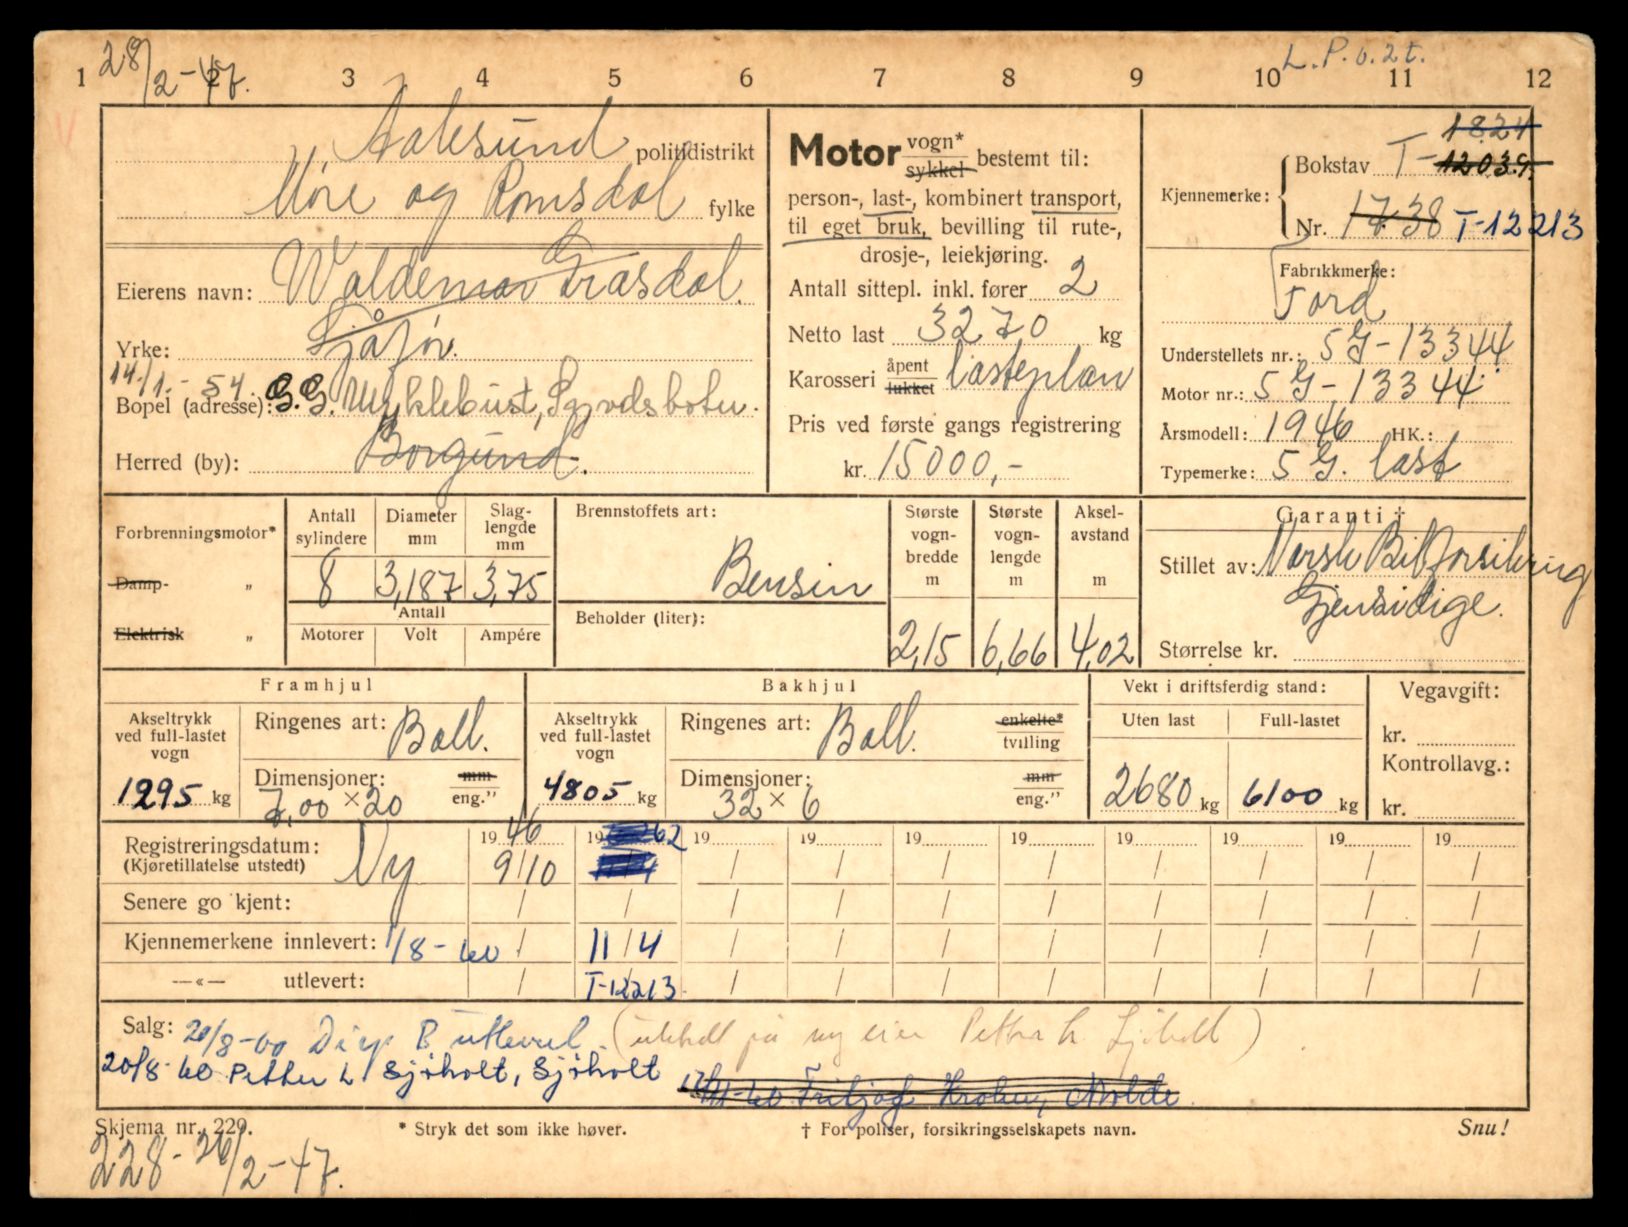 28/2-47.
L.P.o.2t.
1 2 3 4 5 6 7 8 9 10 11 12
Aalesund politidistrikt
Møre og Romsdal fylke
Eierens navn: Waldemar Grasdal.
Yrke: Sjåfør.
14/1.-54.
Bopel (adresse): G.G. Myklebust, Syvdsbotn.
Herred (by): Borgund.
Motor vogn* sykkel bestemt til:
person-, last-, kombinert transport,
til eget bruk, bevilling til rute-,
drosje-, leiekjøring.
Antall sittepl. inkl. fører 2
Netto last 3270 kg
Karosseri åpent lukket lasteplan
Pris ved første gangs registrering
kr. 15000,-
1824
Kjennemerke: Bokstav T- 12039.
Nr. 1738 T-12213
Fabrikkmerke:
Ford
Understellets nr.: 5G-13344
Motor nr.: 5G-13344
Årsmodell: 1946 HK.:
Typemerke: 5G. last
Forbrenningsmotor*
Damp- „
Elektrisk „
Antall sylindere Diameter mm Slag-lengde mm
8 3,187 3,75
Antall
Motorer Volt Ampére
Brennstoffets art:
Bensin
Beholder (liter):
Største vogn-bredde m Største vogn-lengde m Aksel-avstand m
2,15 6,66 4,02
Garanti †
Stillet av: Norsk Bilforsikring
Gjensidige.
Størrelse kr.
Framhjul
Akseltrykk ved full-lastet vogn
1295 kg
Ringenes art: Ball.
Dimensjoner: mm
7,00 × 20 eng.”
Bakhjul
Akseltrykk ved full-lastet vogn
4805 kg
Ringenes art: Ball. enkelte* tvilling
Dimensjoner: mm
32 × 6 eng.”
Vekt i driftsferdig stand:
Uten last Full-lastet
2680 kg 6100 kg
Vegavgift:
kr.
Kontrollavg.:
kr.
Registreringsdatum: Ny 1946 19 62 19 19 19 19 19 19 19 19
(Kjøretillatelse utstedt) 9/10 / / / / / / / /
Senere go kjent: / / / / / / / / / /
Kjennemerkene innlevert: 1/8-60 / 11/4 / / / / / / / /
—«— utlevert: / T-12213 / / / / / / / /
Salg: 20/8-60 Disp B utlevert. (utstedt på ny eier Petter L. Sjøholt)
20/8-60 Petter L. Sjøholt, Sjøholt
Fritjof Krohn, Molde.
Skjema nr. 229.
* Stryk det som ikke høver.
† For poliser, forsikringsselskapets navn.
Snu!
228-26/2-47.